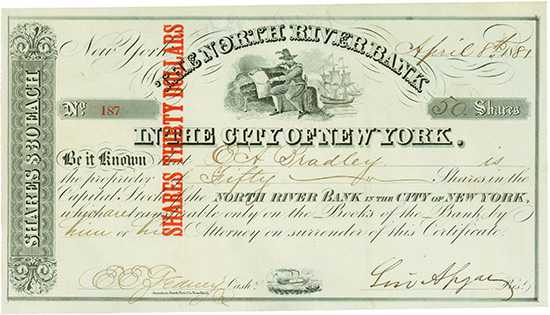 New York April 8th 1881
THE NORTH RIVER BANK
No. 187 50 Shares
IN THE CITY OF NEW YORK.
Be it Known that E A Bradley is
the proprietor of Fifty Shares in the
Capital Stock of the NORTH RIVER BANK IN THE CITY OF NEW YORK,
which are transferable only on the Books of the Bank, by
him or his Attorney on surrender of this Certificate.
Cash.r Pres.t
SHARES $30 EACH
SHARES THIRTY DOLLARS